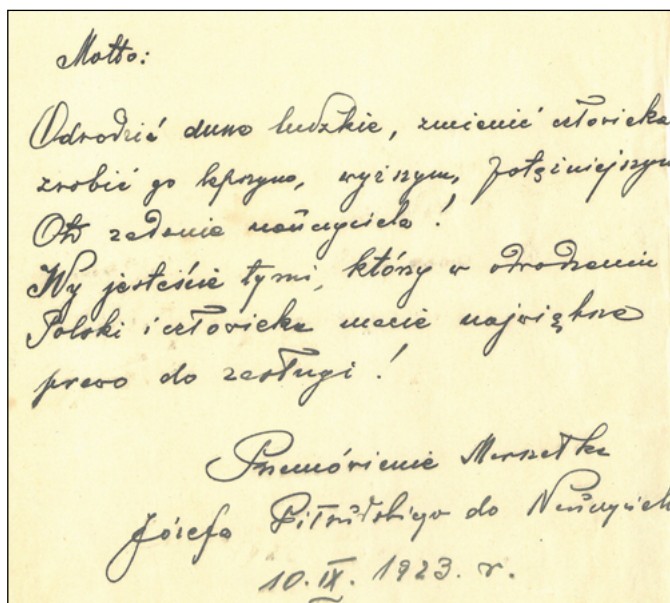 Motto:
Odrodzić dusze ludzkie, zmienić człowieka
zrobić go lepszym, wyższym, potężniejszym
Oto zadanie nauczyciela!
Wy jesteście tymi, którzy w odrodzeniu
Polski i człowieka macie największe
prawo do zasługi!
Przemówienie Marszałka
Józefa Piłsudskiego do Nauczycieli
10. IX. 1923. r.